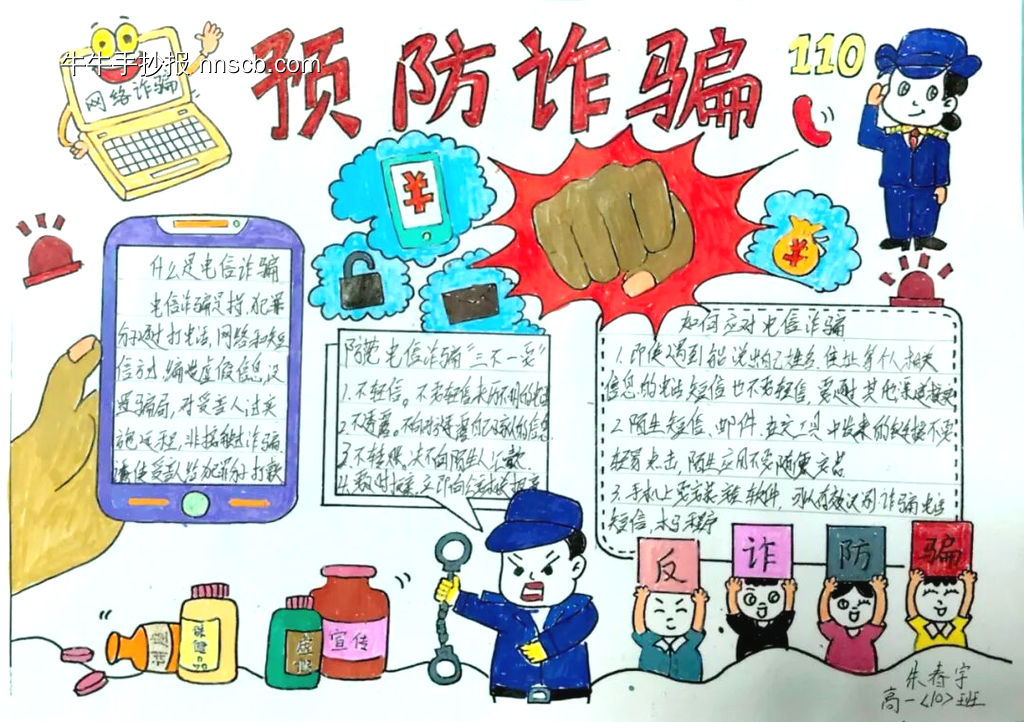 牛牛手抄报 nnscb.com
网络诈骗
预防诈骗
110
什么是电信诈骗
电信诈骗是指犯罪
分子通过打电话,网络和短
信方式,编造虚假信息,设
置骗局,对受害人实
施远程,非接触式诈骗,
诱使受害人给犯罪分子打款
防范电信诈骗"三不一要"
1.不轻信。不要轻信来历不明的电话
2.不透露。不向对方透露自己及家人的信息
3.不转账。决不向陌生人汇款,
4.要及时报案,立即向公安机关报案
如何应对电信诈骗
1.即使遇到能说出自己姓名、住址等个人相关
信息的电话短信也不要轻信,要通过其他渠道核实
2.陌生短信、邮件、社交工具中发来的链接不要
轻易点击,陌生应用不要随便安装
3.手机上要安装软件,可以有效识别诈骗电话
短信,木马程序
反诈防骗
保健品
宣传
朱春宇
高一<10>班